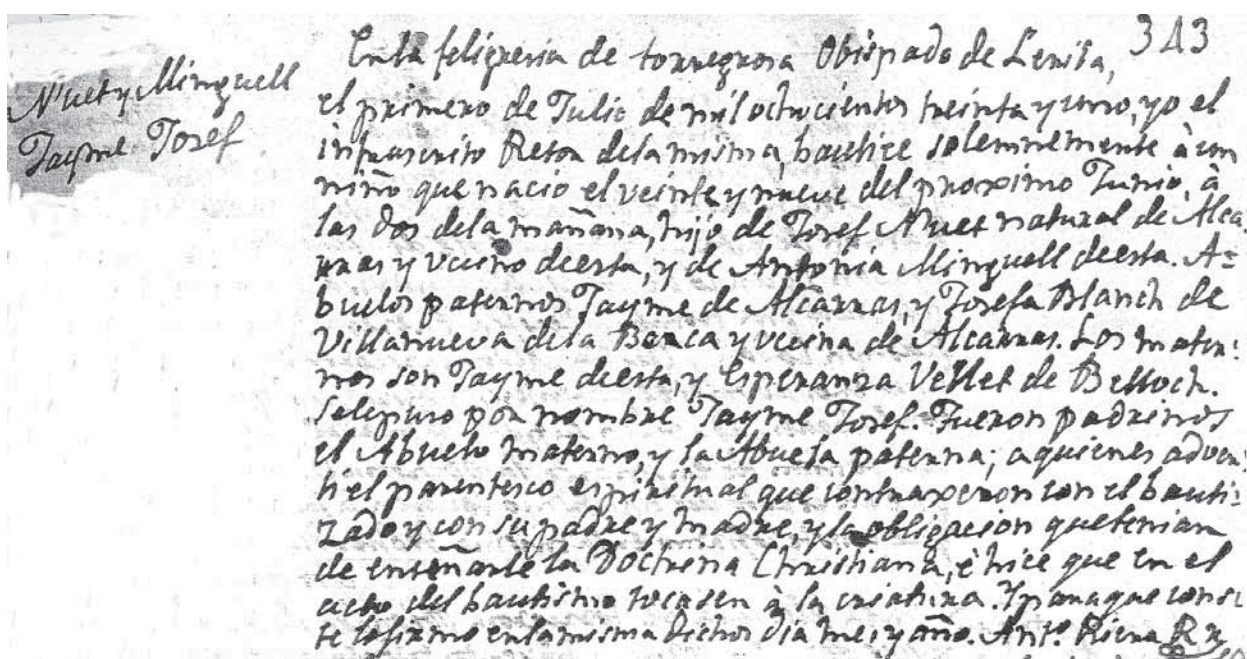 343
Nuet y Minguell
Jayme Josef
En la feligresia de torregrosa Obispado de Lerida,
el primero de Julio de mil ochocientos treinta y uno, yo el
infrascrito Retor dela misma, bautice solemnemente à un
niño que nacio el veinte y nueve del proximo Junio, à
las dos dela mañana, hijo de Josef Nuet natural de Alca
rras y vecino deesta, y de Antonia Minguell deesta. A=
buelos paternos Jayme de Alcarras, y Josefa Blanch de
Villanueva dela Barca y vecina de Alcarras. Los mater=
nos son Jayme deesta, y Esperanza Vellet de Belloch.
Selepuso por nombre Jayme Josef. Fueron padrinos
el Abuelo materno, y la Abuela paterna; aquienes adver=
ti el parentesco espiritual que contraxeron con el bauti=
zado y con su padre y madre, y la obligacion quetenian
de enseñarle la Doctrina Christiana, è hice que en el
acto del bautismo tocasen à la criatura. Y paraque cons
te lofirmo enlamisma dichos dia mes, y año. Antº Riera Rr